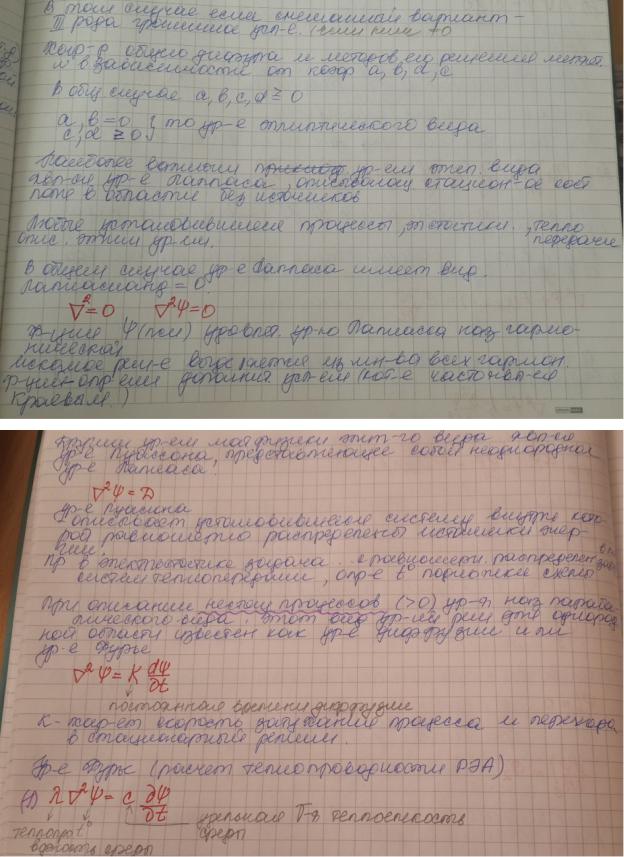 В этом случае если смешанный вариант –
III рода граничное усл-е. (если коэф ≠0
Хар-р общего диф.ура и методов его решения меняет.
и в зависимости от коэф a, b, d, c
В общ случае a, b, c, d ≥ 0
a, b = 0
c, d ≥ 0 } то ур-е эллиптического вида
Наиболее важным ур-ем элеп. вида
явл-ся ур-е Лапласа, описывающ стацион-ое сост
поле в области без источников
Любые установившиеся процессы, эл статики, тепло
передачи
опис. этим ур-ем.
В общем случае ур-е Лапласа имеет вид.
Лапласианд = 0
∇²=0 ∇²Ψ=0
Ф-ция Ψ(пси) удовлет. ур-ю Лапласа наз гармо-
нической
искомое реш-е выделяется из мн-ва всех гармон.
ф-ций опр-еми дополнит усл-ем (кот-е часто наз-ся
краевым)
Другим ур-ем матфизики элип-го вида явл-ся
ур-е Пуассона, представляющее собой неоднородное
ур-е Лапласа.
∇²Ψ = D
ур-е Пуасиона
описывает установившиеся систему внутри кото-
рой равномерно распределены источники энер-
гии.
Пр в электростатике задача с равномерн. распределен
систем теплопередачи, опр-е t° подложки схемы
При описании нестац процессов (>0) ур-я наз парабо-
лического вида. Этот вид ур-ия для однород
ной области известен как ур-е диффузии или
ур-е Фурье
∇²Ψ = K dΨ/∂t
постоянная времени диффузии
K - хар-ет скорость затухания процесса и перехода
в стационарный режим.
Ур-е Фурье (расчет теплопроводности РЭА)
(1) λ∇²Ψ = c ∂Ψ/∂t
удельная теплоемкость
среды
теплопро
водность среды